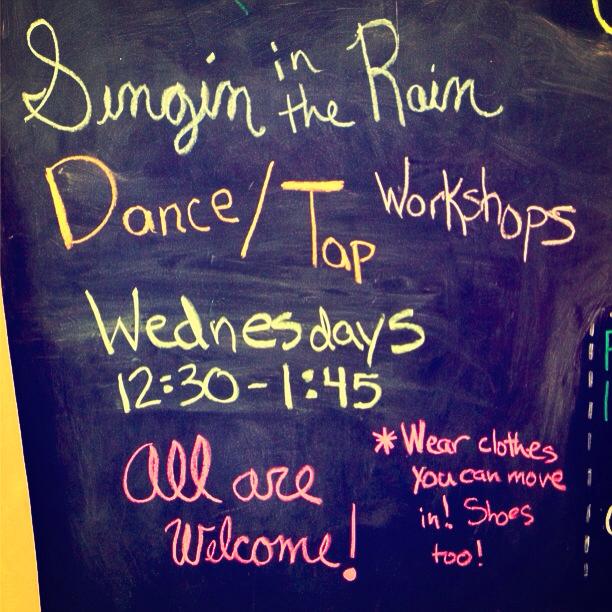 Singin in the Rain
Dance/Tap Workshops
Wednesdays
12:30-1:45
All are
Welcome!
*Wear clothes
you can move
in! Shoes
too!